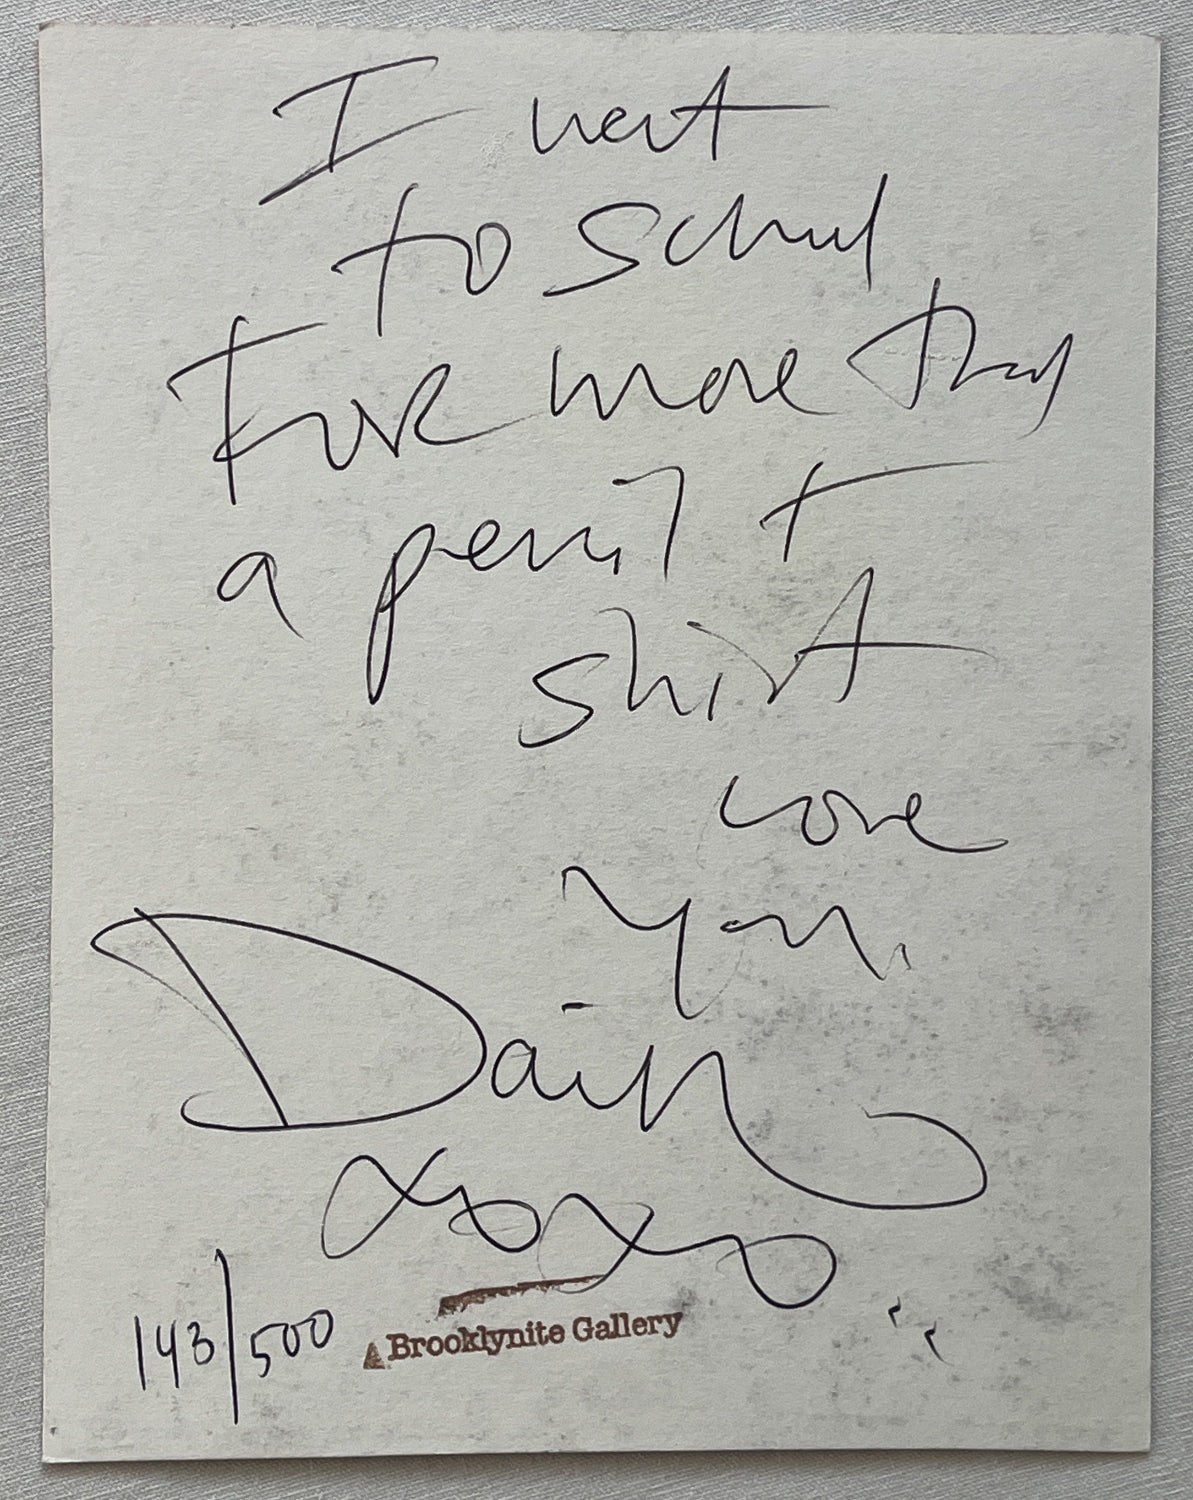 I went
to school
For more than
a pencil t
shirt
Love
you.
Dain
xoxo
143/500
Brooklynite Gallery